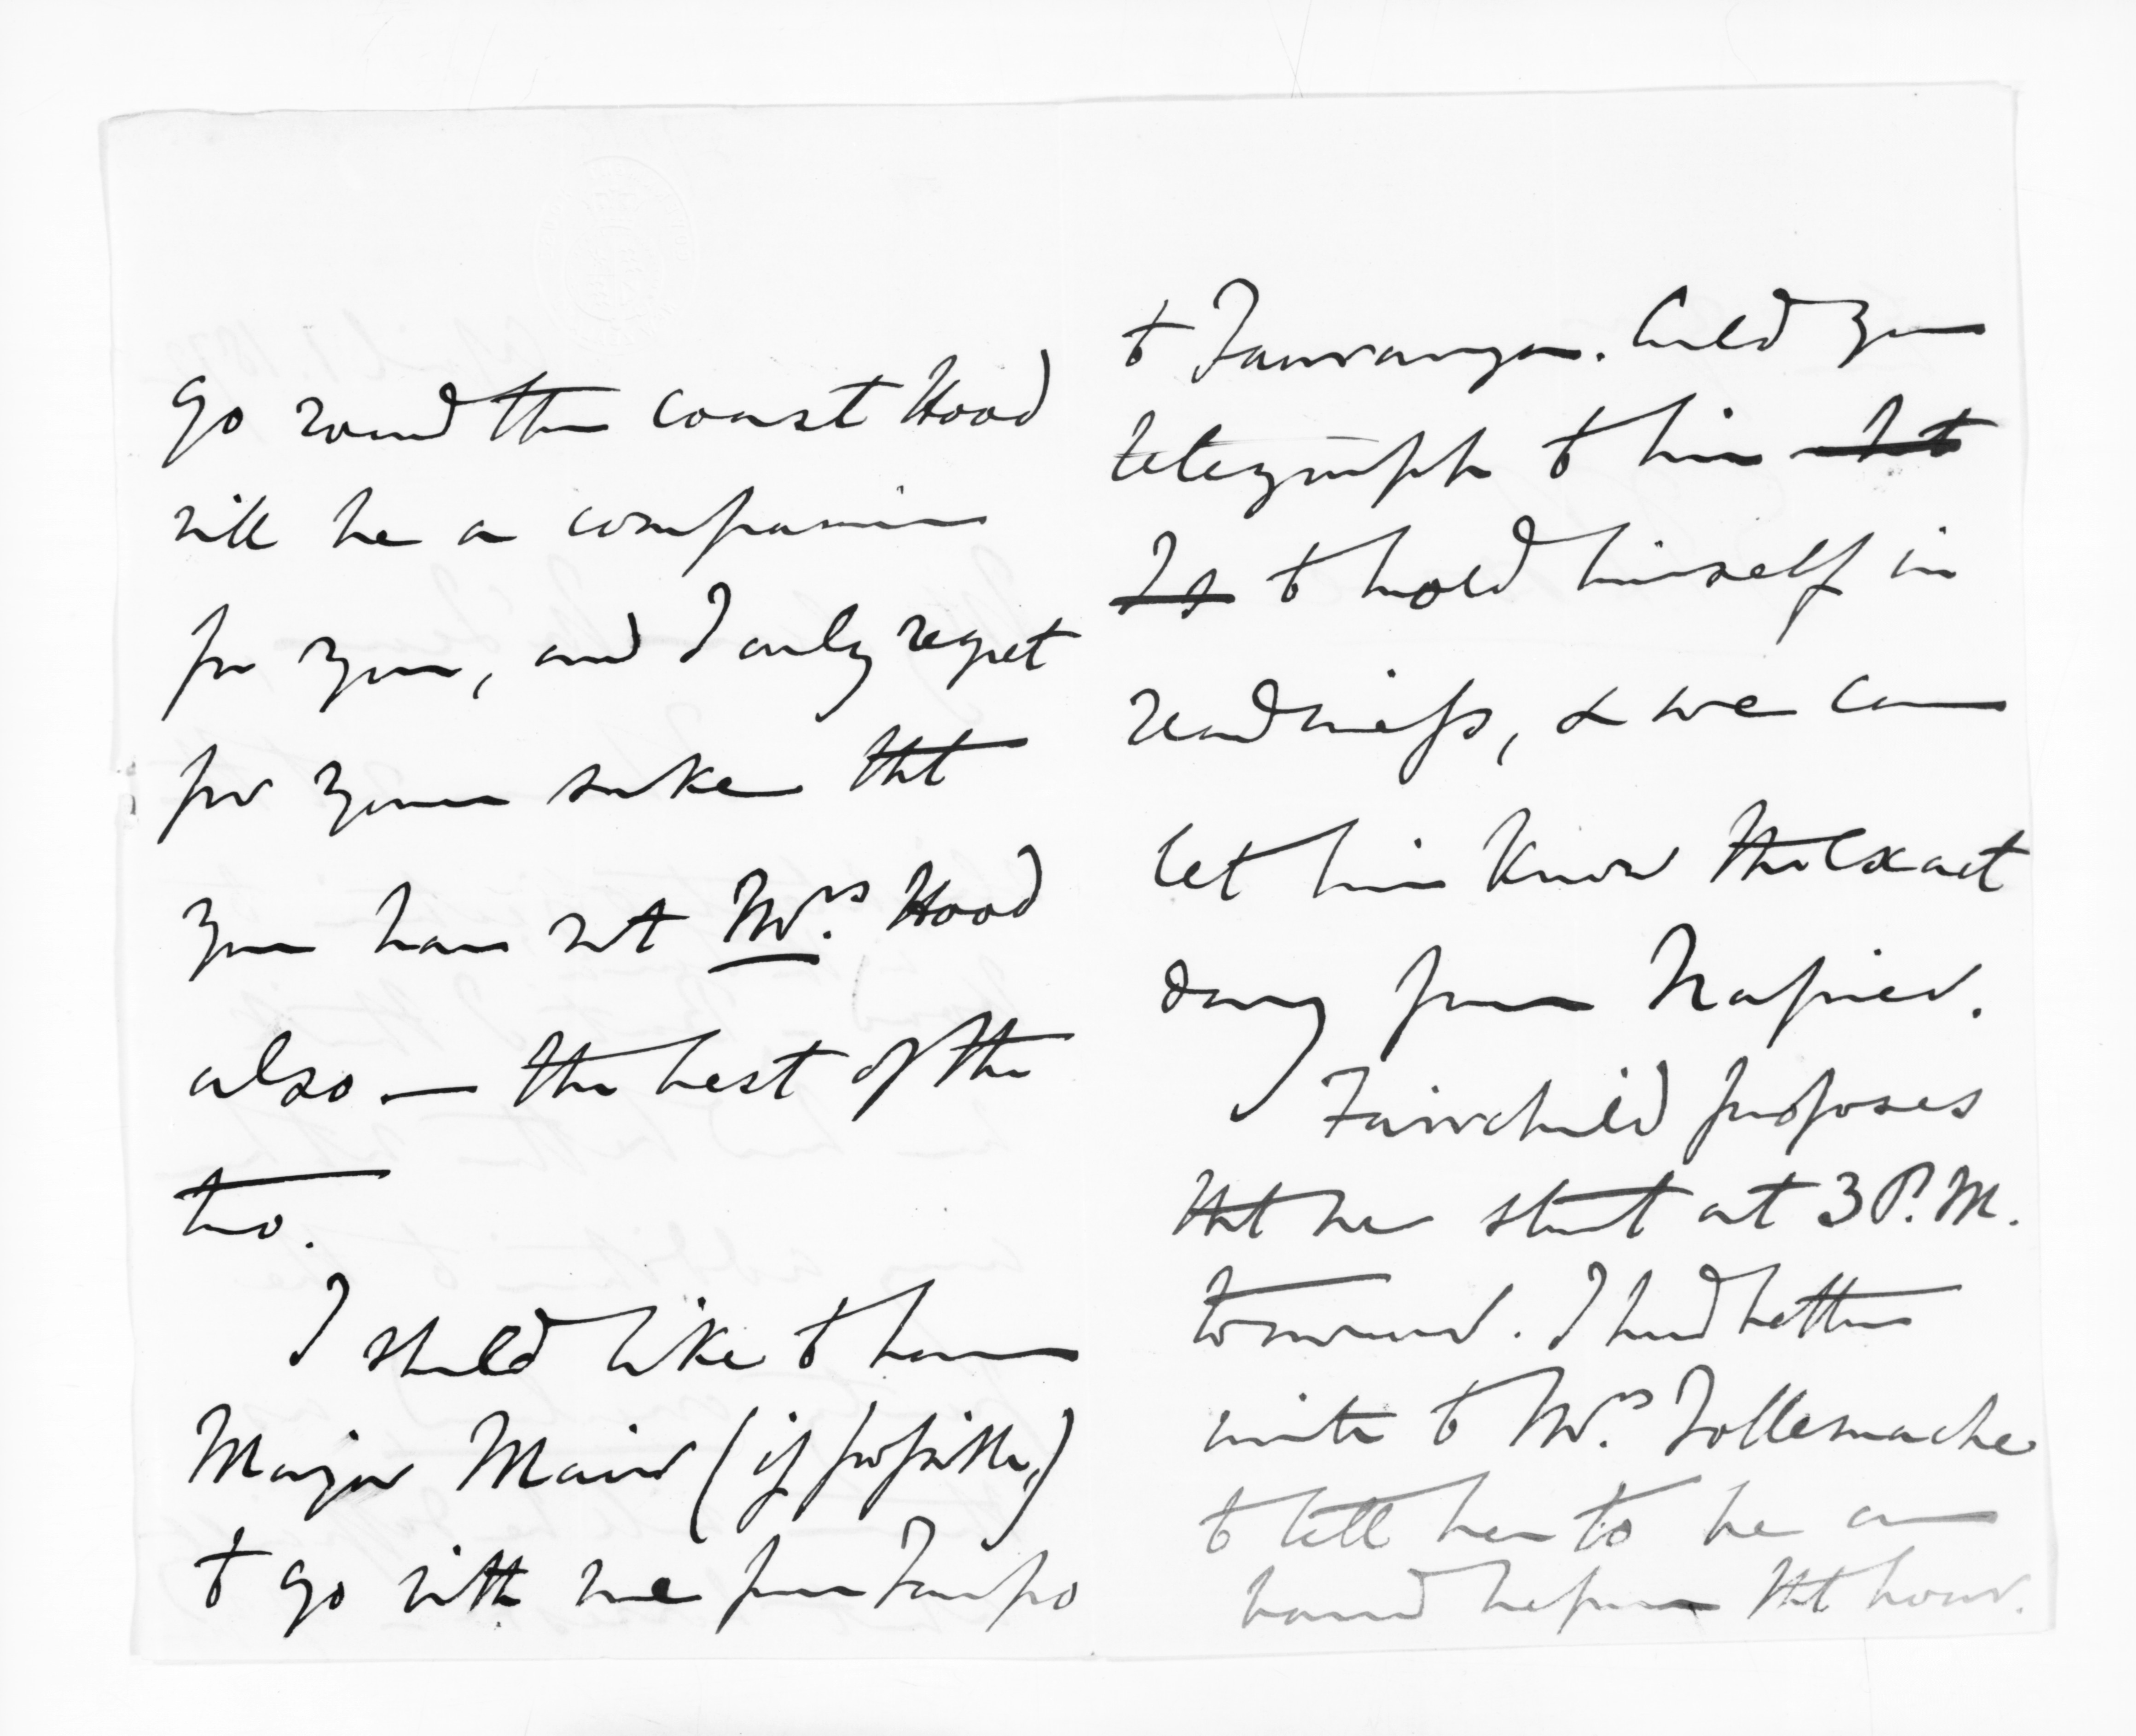 go round the coast Hood
will be a companion
for you, and I only regret
for your sake tht
you have not Mrs. Hood
also — the best of the
two.
I should like to have
Major Mair (if possible,)
to go with me from Taupo
to Tauranga. Could you
telegraph to him
to hold himself in
readiness, & we can
let him know the exact
day from Napier.
Fairchild proposes
tht we start at 3 P.M.
tomorrow. I had better
write to Mrs. Tollemache
to tell her to be on
board before tht hour.